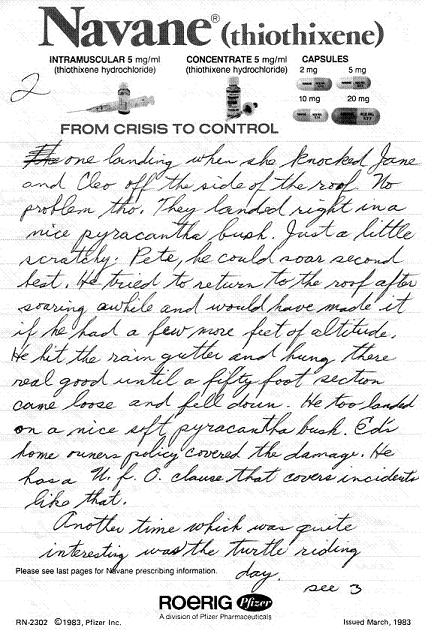 Navane® (thiothixene)
INTRAMUSCULAR 5 mg/ml CONCENTRATE 5 mg/ml CAPSULES
(thiothixene hydrochloride) (thiothixene hydrochloride) 2 mg 5 mg
10 mg 20 mg
2
FROM CRISIS TO CONTROL
one landing when she knocked Jane
and Cleo off the side of the roof. No
problem tho. They landed right in a
nice pyracantha bush. Just a little
scratchy. Pete, he could soar second
best. He tried to return to the roof after
soaring awhile and would have made it
if he had a few more feet of altitude.
He hit the rain gutter and hung there
real good until a fifty foot section
came loose and fell down. He too landed
on a nice soft pyracantha bush. Ed's
home owners policy covered the damage. He
has a U.F.O. clause that covers incidents
like that.
Another time which was quite
interesting was the turtle riding
day.
Please see last pages for Navane prescribing information.
see 3
ROERIG Pfizer
A division of Pfizer Pharmaceuticals
RN-2302 ©1983, Pfizer Inc. Issued March, 1983